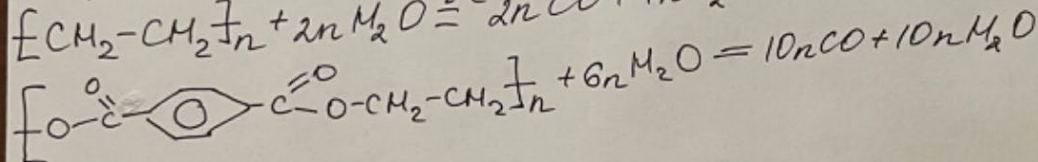 [CH₂-CH₂]ₙ + 2n H₂O = 2n CO
[O-C(=O)-⌬-C(=O)-O-CH₂-CH₂]ₙ + 6n H₂O = 10n CO + 10n H₂O